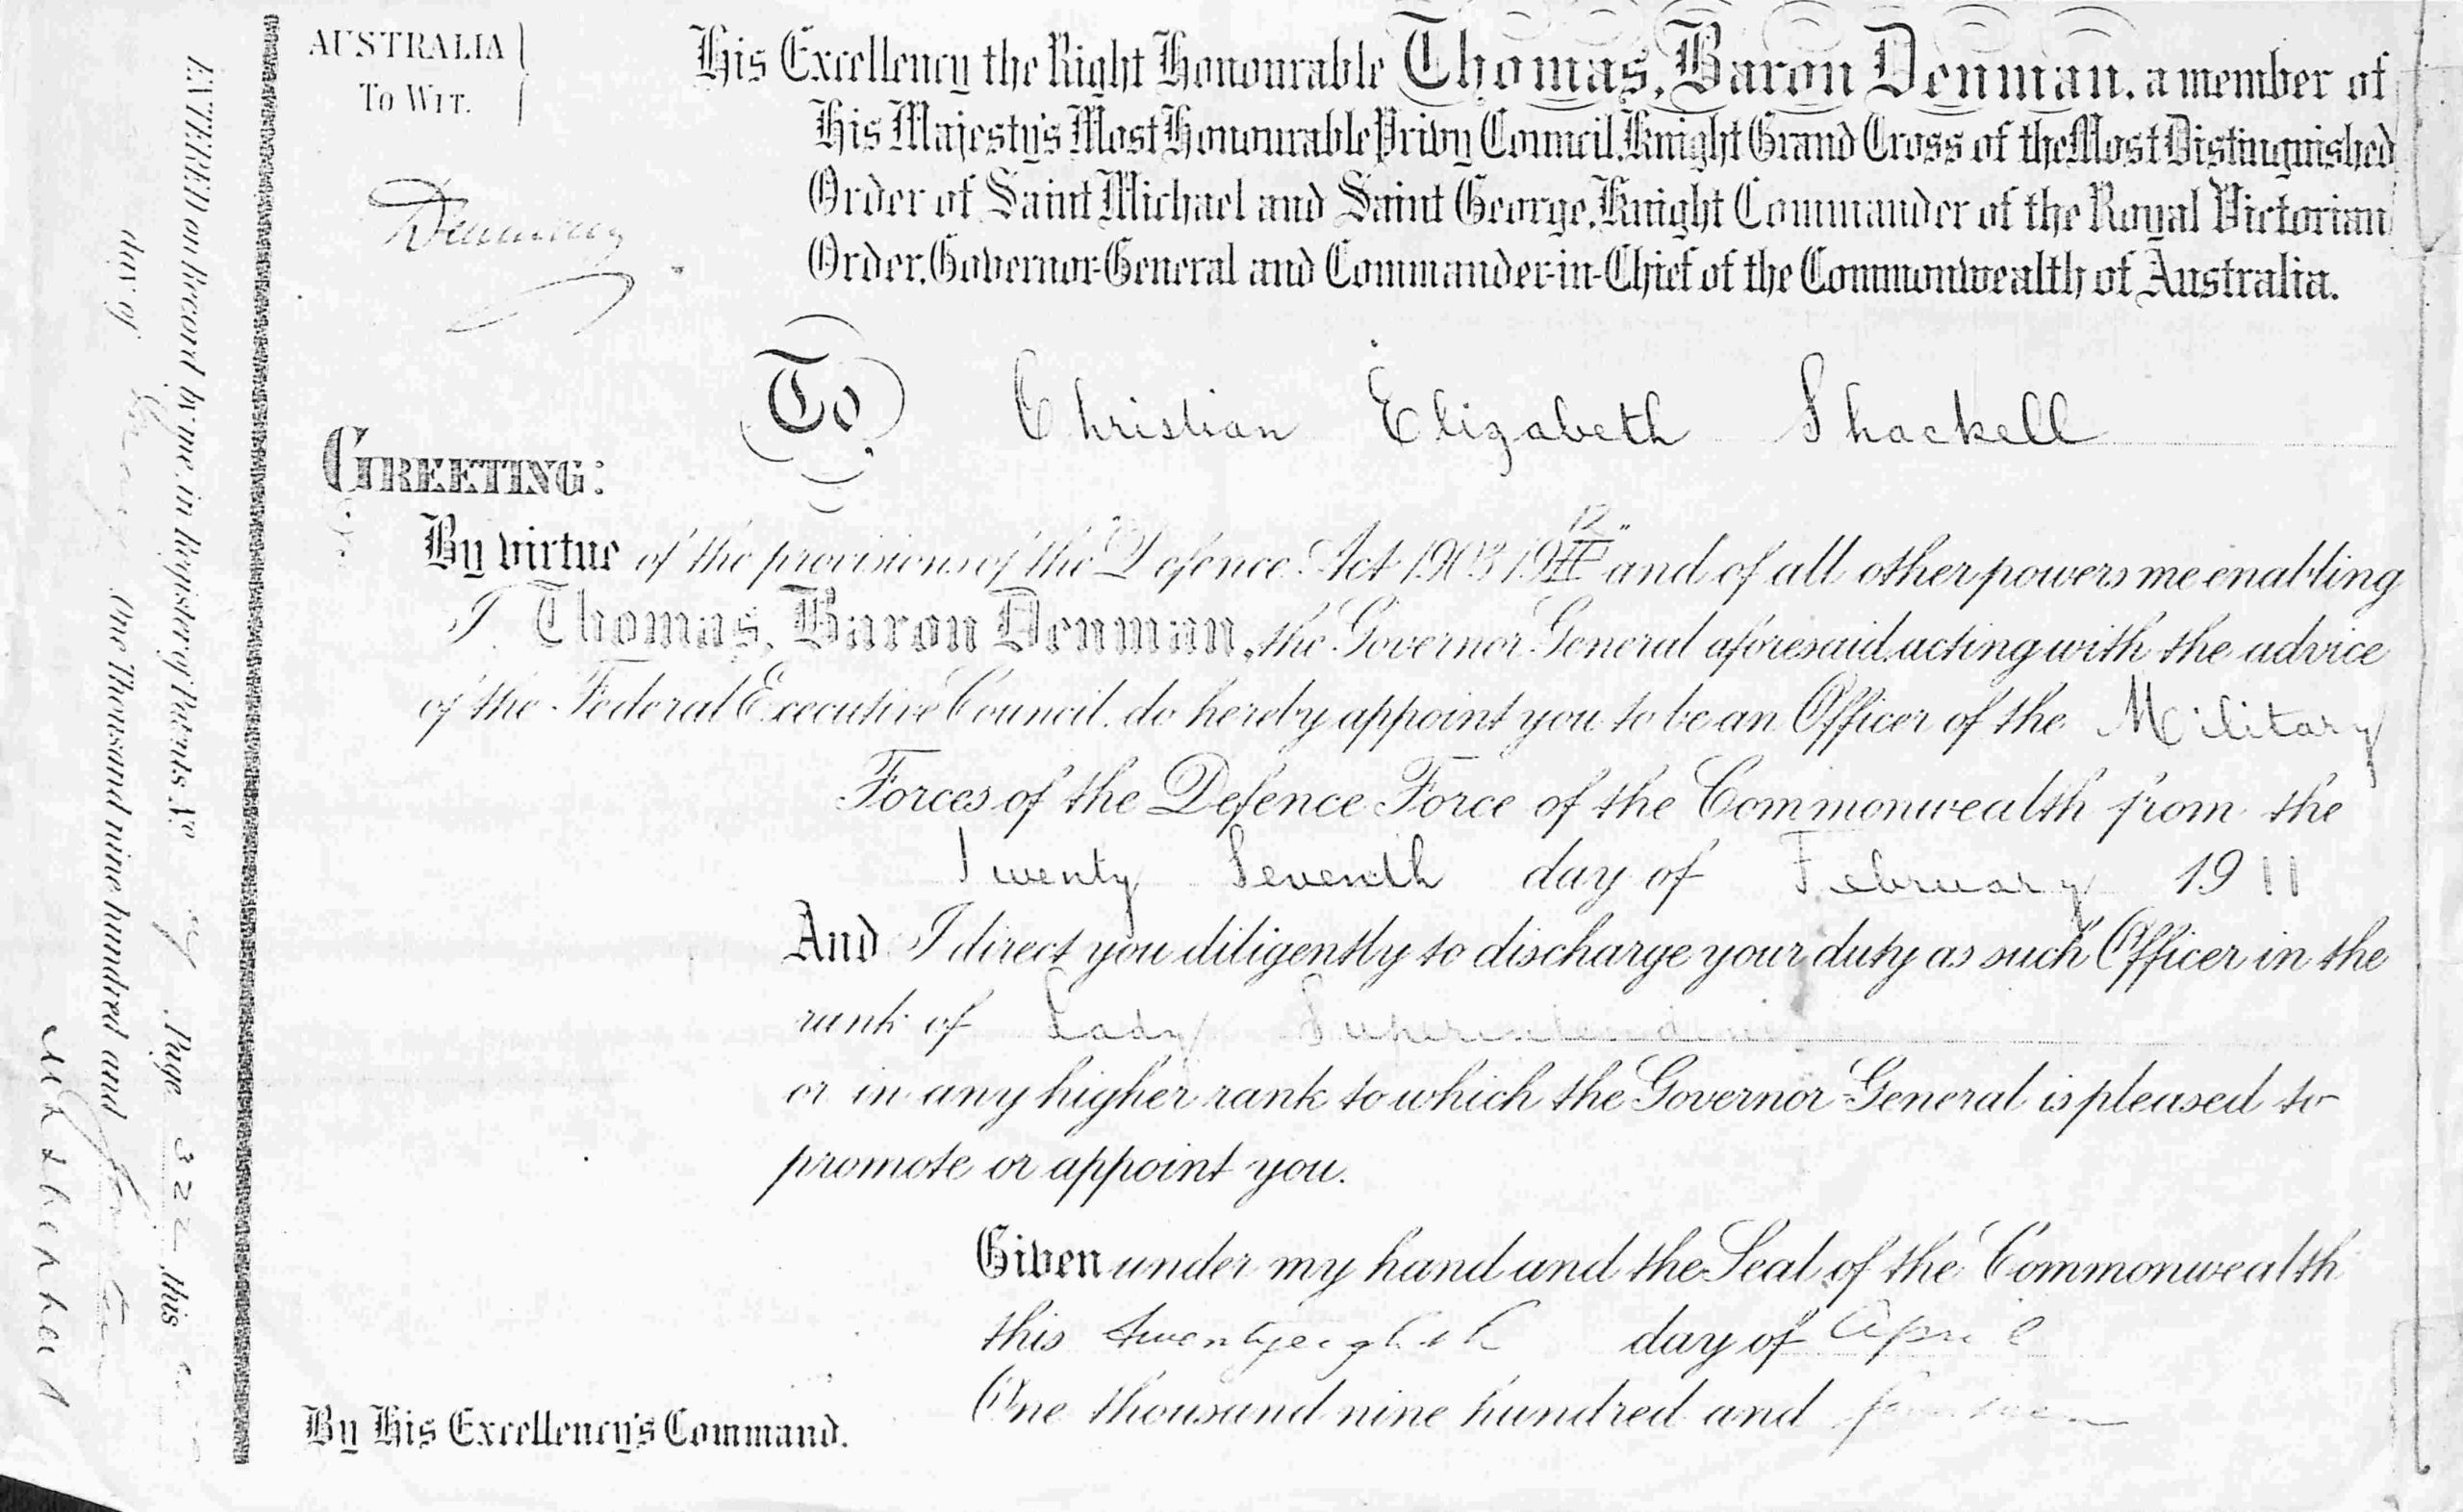 AUSTRALIA
To Wit.
Denman
His Excellency the Right Honourable Thomas, Baron Denman, a member of
His Majesty's Most Honourable Privy Council, Knight Grand Cross of the Most Distinguished
Order of Saint Michael and Saint George, Knight Commander of the Royal Victorian
Order, Governor-General and Commander-in-Chief of the Commonwealth of Australia.
To Christian Elizabeth Shackell
GREETING:
By virtue of the provisions of the Defence Act 1903-1912 and of all other powers me enabling
I, Thomas, Baron Denman, the Governor General aforesaid, acting with the advice
of the Federal Executive Council, do hereby appoint you to be an Officer of the Military
Forces of the Defence Force of the Commonwealth from the
Twenty Seventh day of February 1911
And I direct you diligently to discharge your duty as such Officer in the
rank of Lady Superintendent
or in any higher rank to which the Governor-General is pleased to
promote or appoint you.
Given under my hand and the Seal of the Commonwealth
this twentyeighth day of April
One thousand nine hundred and fourteen
By His Excellency's Command.
ENTERED on Record by me, in Register of Patents No. Page 322 this
day of One Thousand nine hundred and fourteen